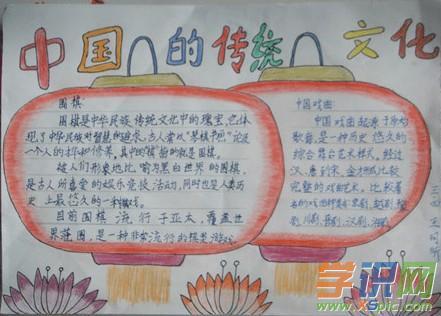 中国的传统文化
围棋
围棋是中华民族传统文化中的瑰宝，它体
现了中华民族对智慧的追求，古人常以"琴棋书画"论及
一个人的才华和修养，其中的"棋"指的就是围棋。
被人们形象地比喻为黑白世界的围棋，
是古人所喜爱的娱乐竞技活动，同时也是人类历
史上最悠久的一种棋戏。
目前围棋流行于亚太，覆盖世
界范围，是一种非常流行的棋类游戏。
中国戏曲
中国戏曲起源于原始
歌舞，是一种历史悠久的
综合舞台艺术样式。经过
汉、唐到宋、金才形成比较
完整的戏曲艺术，比较著
名的戏曲种类有：京剧、越剧
川剧、昆剧、汉剧
学识网
www.XSpic.com